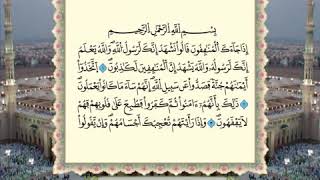 بِسْمِ ٱللَّهِ ٱلرَّحْمَٰنِ ٱلرَّحِيمِ
إِذَا جَآءَكَ ٱلْمُنَٰفِقُونَ قَالُوا۟ نَشْهَدُ إِنَّكَ لَرَسُولُ ٱللَّهِ وَٱللَّهُ يَعْلَمُ
إِنَّكَ لَرَسُولُهُۥ وَٱللَّهُ يَشْهَدُ إِنَّ ٱلْمُنَٰفِقِينَ لَكَٰذِبُونَ ۝ ٱتَّخَذُوٓا۟
أَيْمَٰنَهُمْ جُنَّةً فَصَدُّوا۟ عَن سَبِيلِ ٱللَّهِ إِنَّهُمْ سَآءَ مَا كَانُوا۟ يَعْمَلُونَ
۝ ذَٰلِكَ بِأَنَّهُمْ ءَامَنُوا۟ ثُمَّ كَفَرُوا۟ فَطُبِعَ عَلَىٰ قُلُوبِهِمْ فَهُمْ
لَا يَفْقَهُونَ ۝ وَإِذَا رَأَيْتَهُمْ تُعْجِبُكَ أَجْسَامُهُمْ وَإِن يَقُولُوا۟